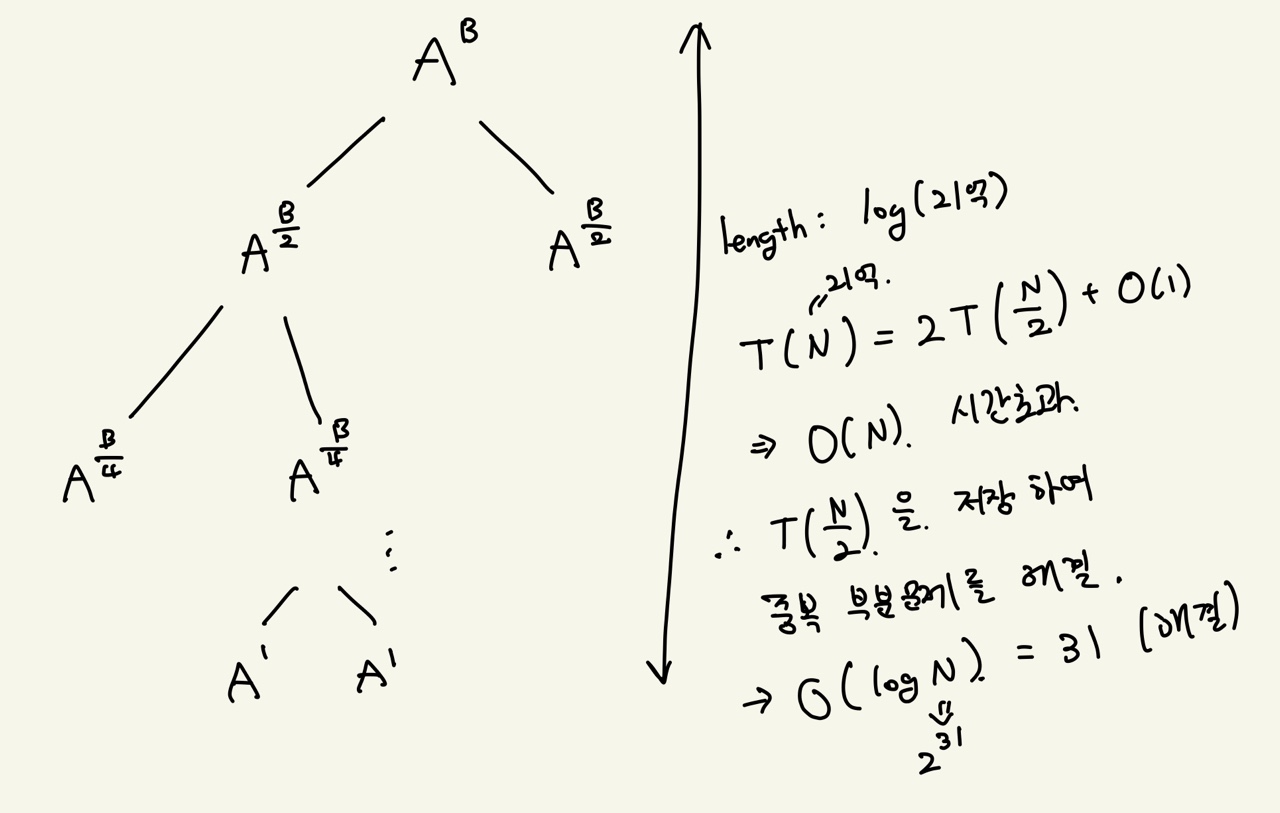 A^B
A^(B/2) A^(B/2)
A^(B/4) A^(B/4)
⋮
A^1 A^1
length: log(21억)
21억.
T(N) = 2T(N/2) + O(1)
⇒ O(N). 시간초과.
∴ T(N/2).을. 저장하여
중복 부분문제를 해결.
→ O(log N). = 31 (해결)
2^31